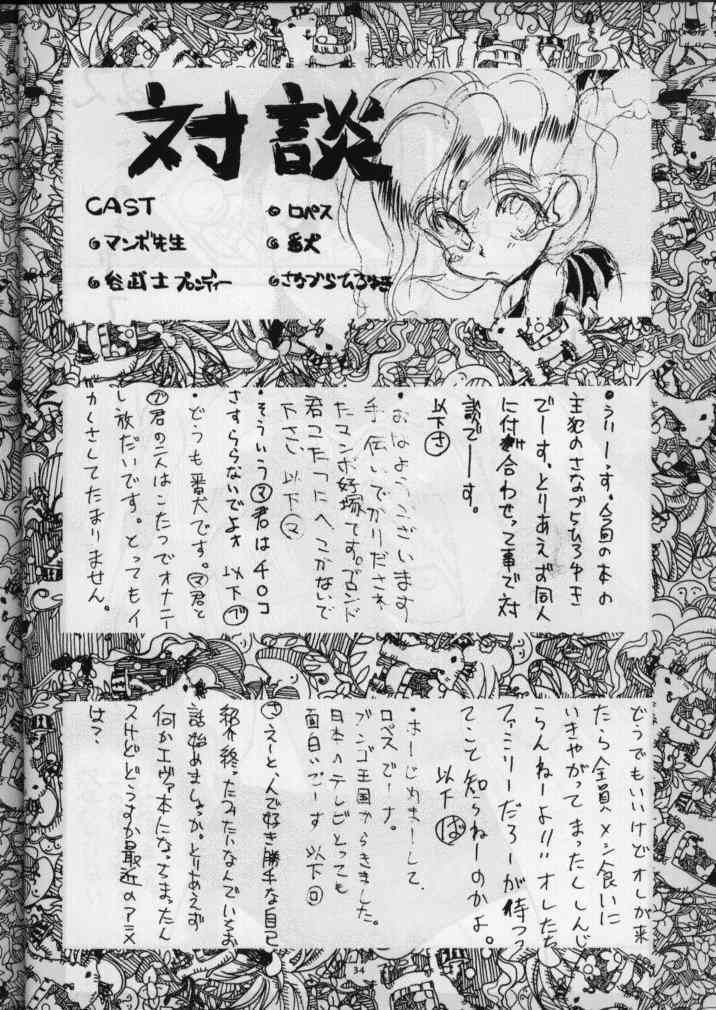 対談
CAST
マンボ先生
谷武士ブロンディー
ロペス
番犬
さなづらひろゆき
・うりーっす。今回の本の
主犯のさなづらひろゆき
でーす。とりあえず同人
に付き合わせって事で対
談でーす。
以下さ
・おはようございます
手伝いでかりだされ
たマンボ好塚です。ブロンド
君こたつにへこかないで
下さい 以下マ
・そういうマ君はチ○コ
さすらないでよォ 以下ブ
・どうも番犬です。マ君と
ブ君の二人はこたつでオナニー
し放だいです。とってもイ
カくさしてたまりません。
どうでもいいけどオレが来
たら全員メシ食いに
いきやがってまったくしんじ
らんねーよ!!オレたち
ファミリーだろーが待つっ
てこと知らねーのかよ。
以下ば
・はーじめまーして、
ロペスでーす。
ブンゴ王国からきました。
日本のテレビとっても
面白いでーす 以下ロ
さ えーと、んで好き勝手な自己
紹介終ったみたいなんでいちお
話始めましょっか。とりあえず
何かエヴァ本になってまったん
スけどどうすか最近のアニメ
は?
34